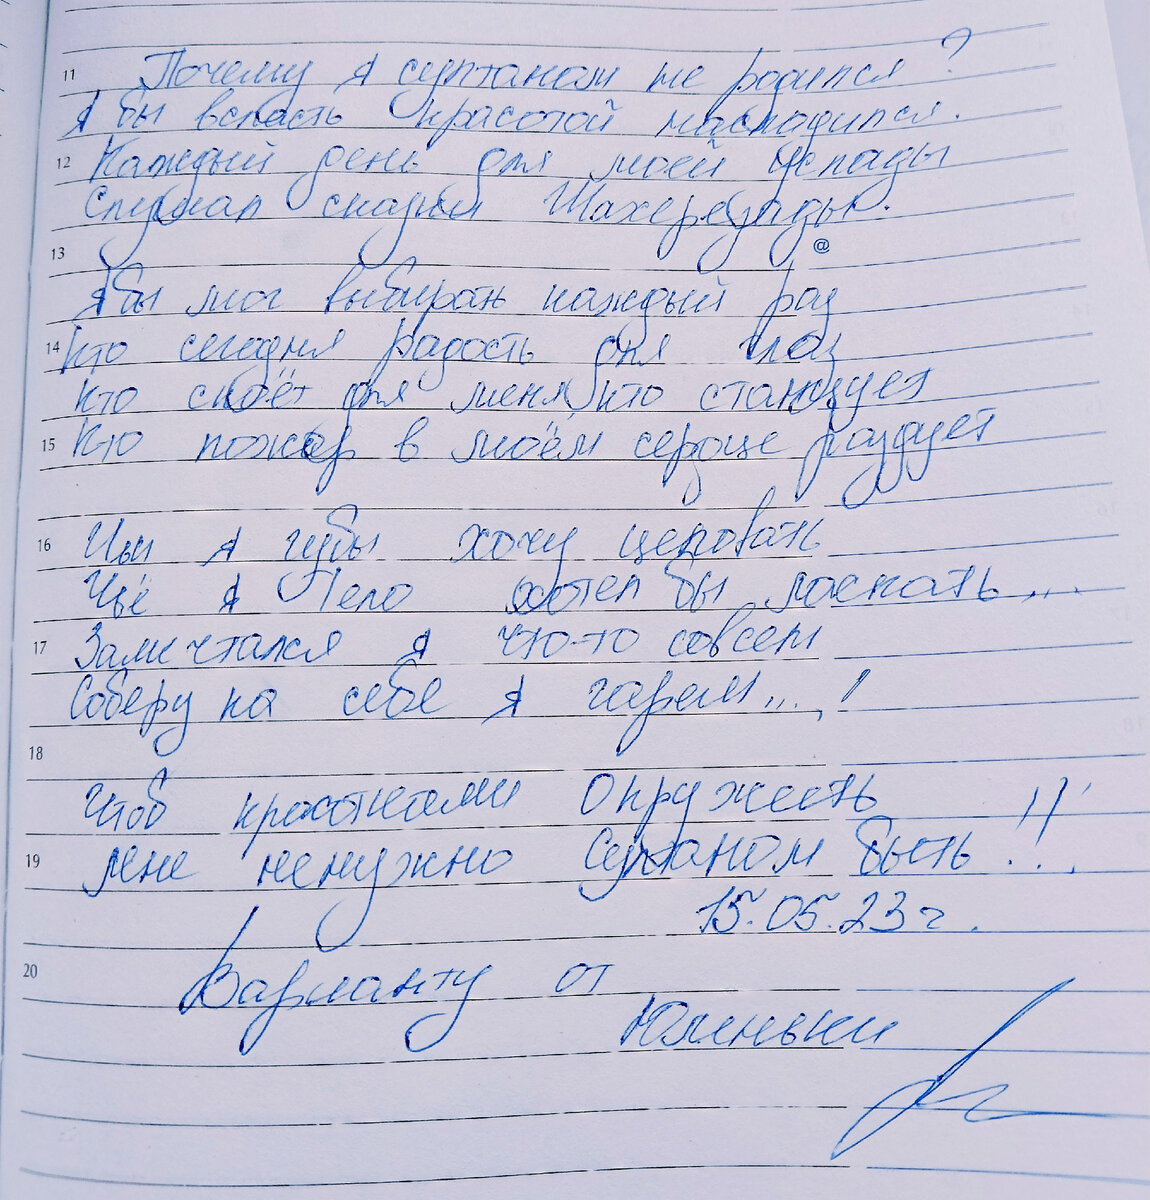 11 Почему я султаном не родился?
Я бы всласть красотой насладился.
12 Каждый день для моей услады
Слушал сказки Шахерезады.
13 @
Я бы мог выбирать каждый раз
14 Кто сегодня радость для глаз
Кто споёт для меня, кто станцует
15 Кто пожар в моём сердце раздует
16 Чьи я губы хочу целовать
Чьё я тело хотел бы ласкать...
17 Замечтался я что-то совсем
Соберу на себе я гарем...!
18
Чтоб красотками окружить
19 Мне ненужно Султаном быть!!!
15.05.23 г.
20 Варланту от
Юленьки